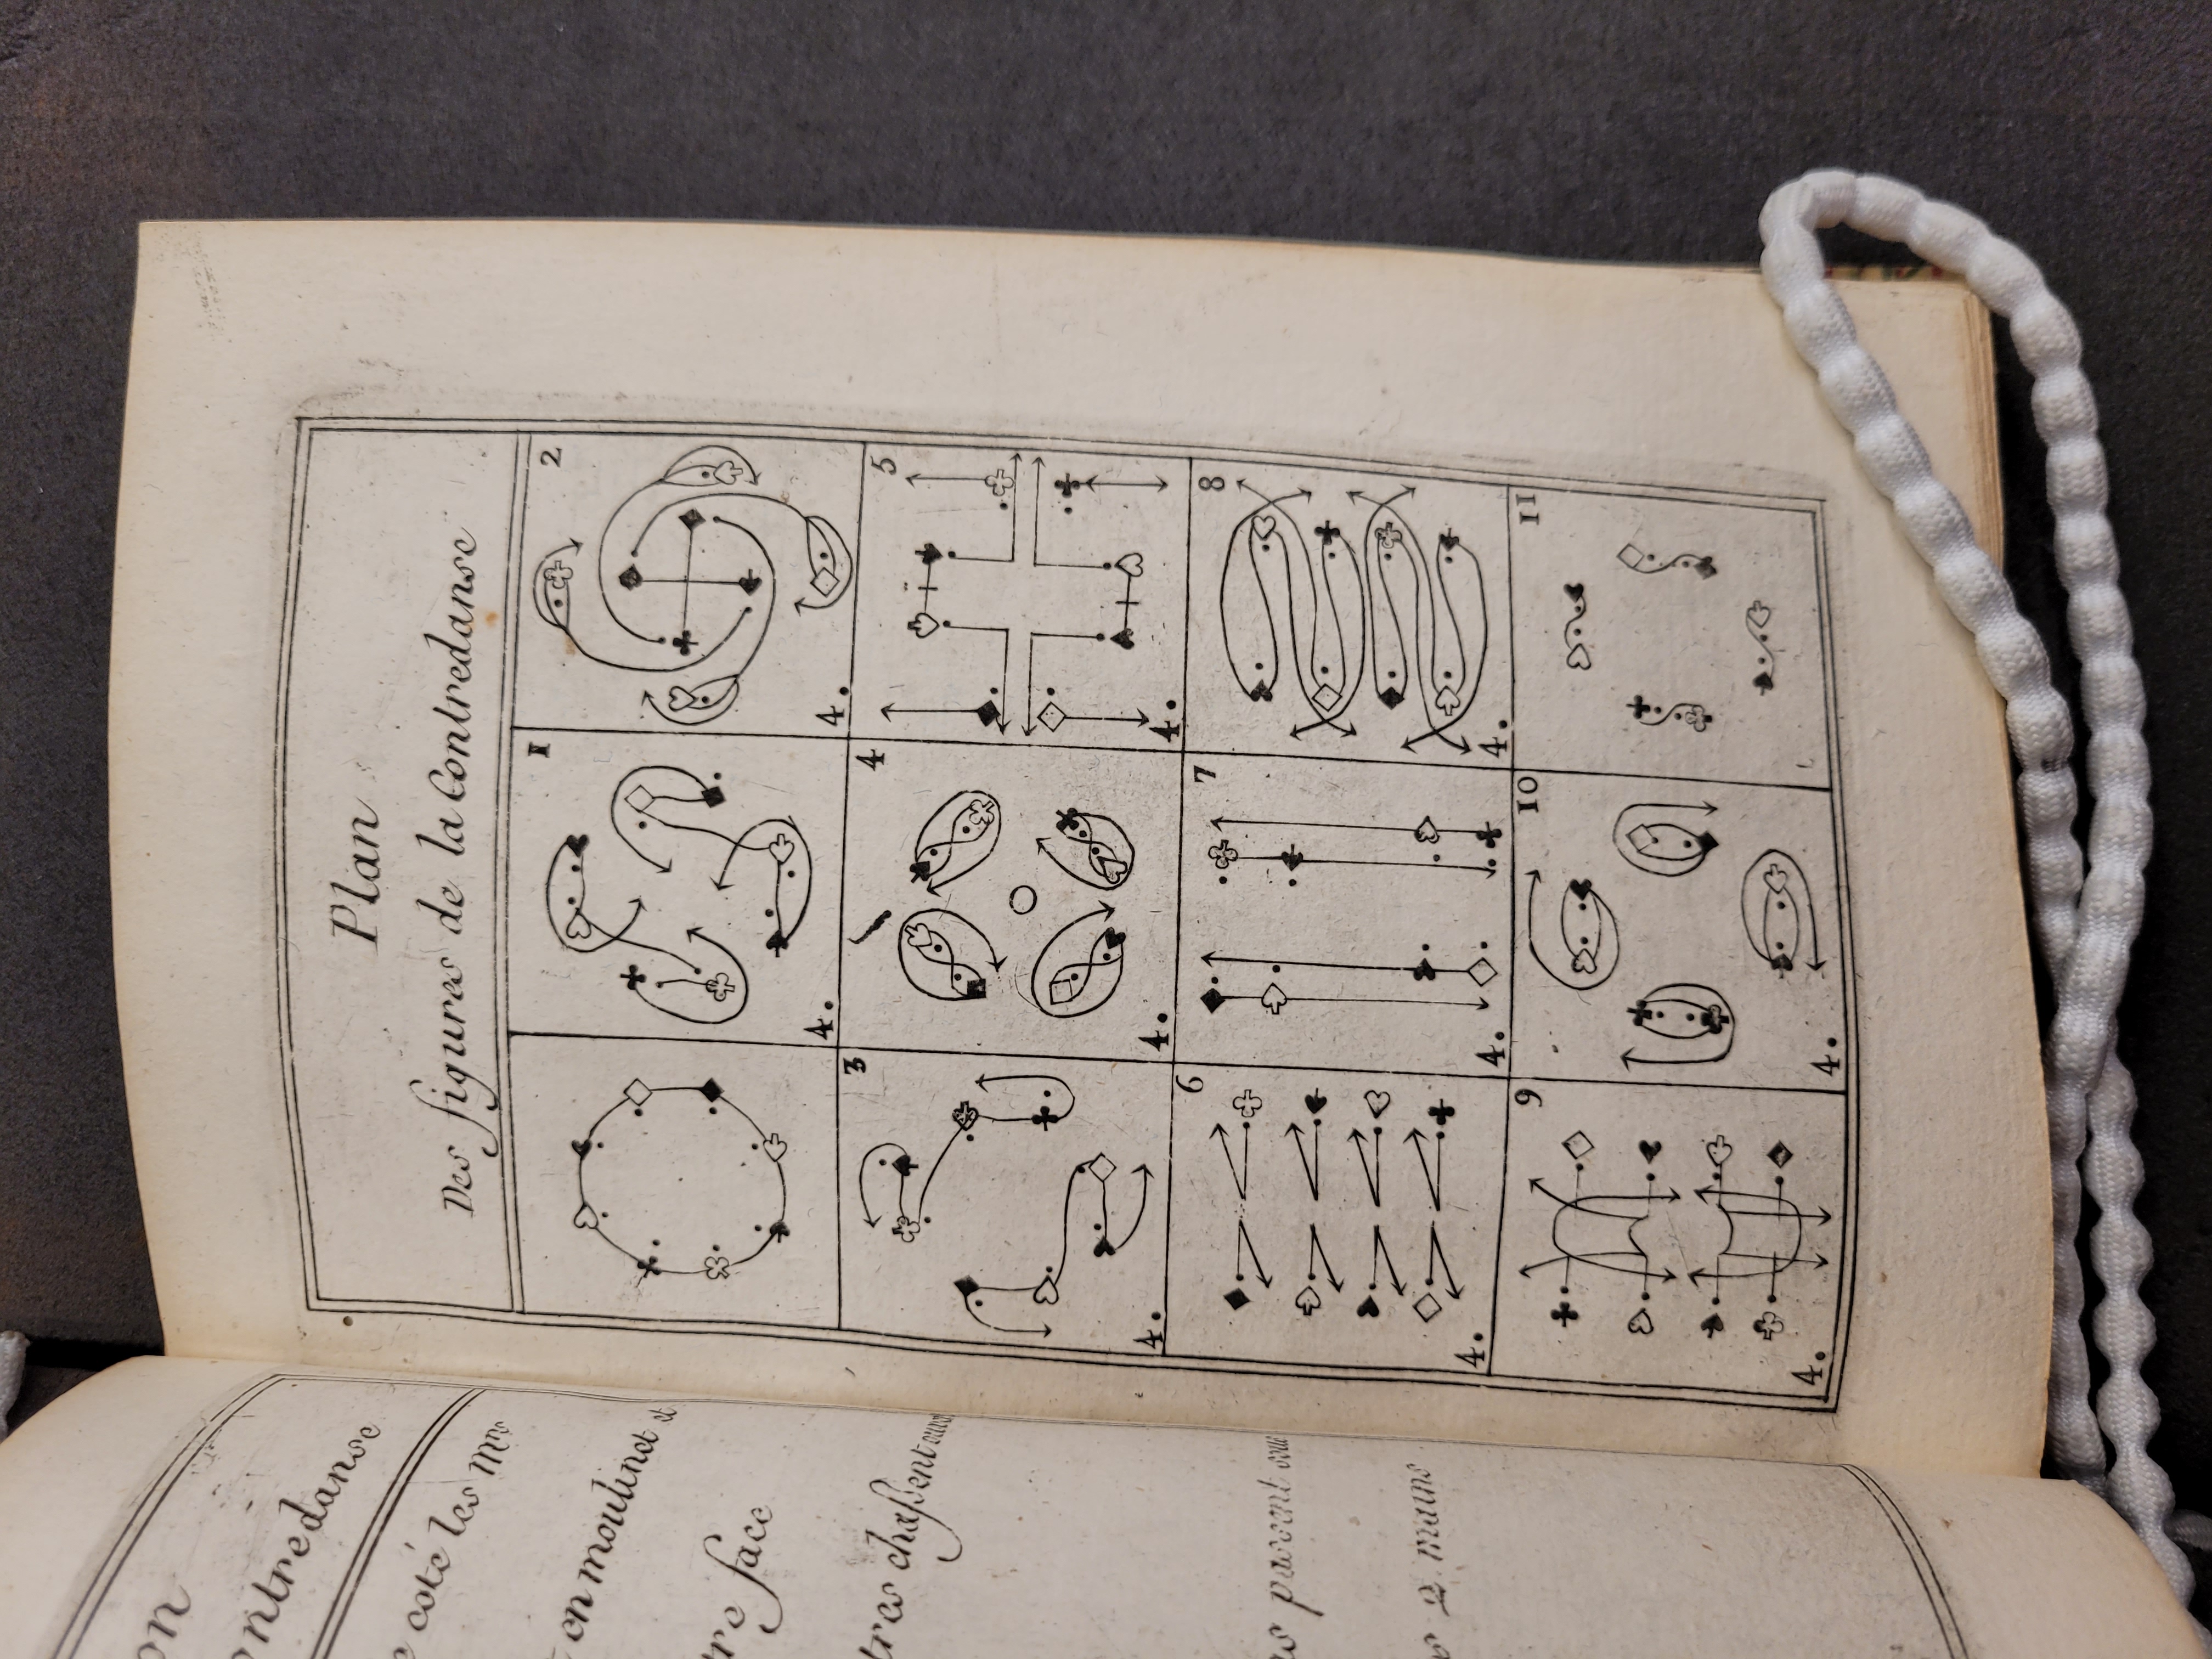 Plan
Des figures de la Contredanse
1
2
4.
4.
3
4
5
4.
4.
4.
6
7
8
4.
4.
4.
9
10
11
4.
4.
on
ontredanse
coté les mrs
en moulinet et
tre face
tres chassent
passent
2 mains